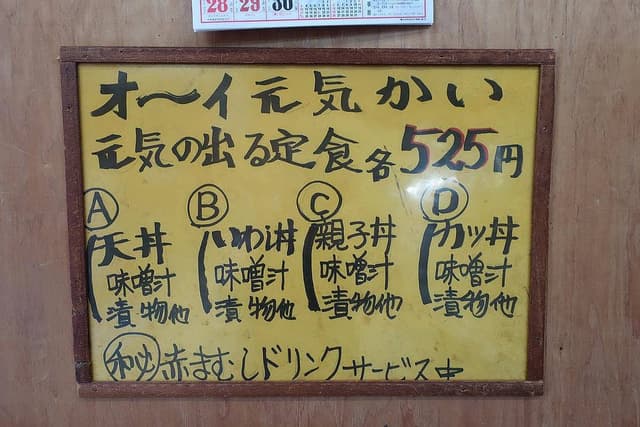 28 29 30
オ～イ元気かい
元気の出る定食各525円
Ⓐ Ⓑ Ⓒ Ⓓ
天丼 いわし丼 親子丼 カツ丼
味噌汁 味噌汁 味噌汁 味噌汁
漬物他 漬物他 漬物他 漬物他
赤まむしドリンクサービス中